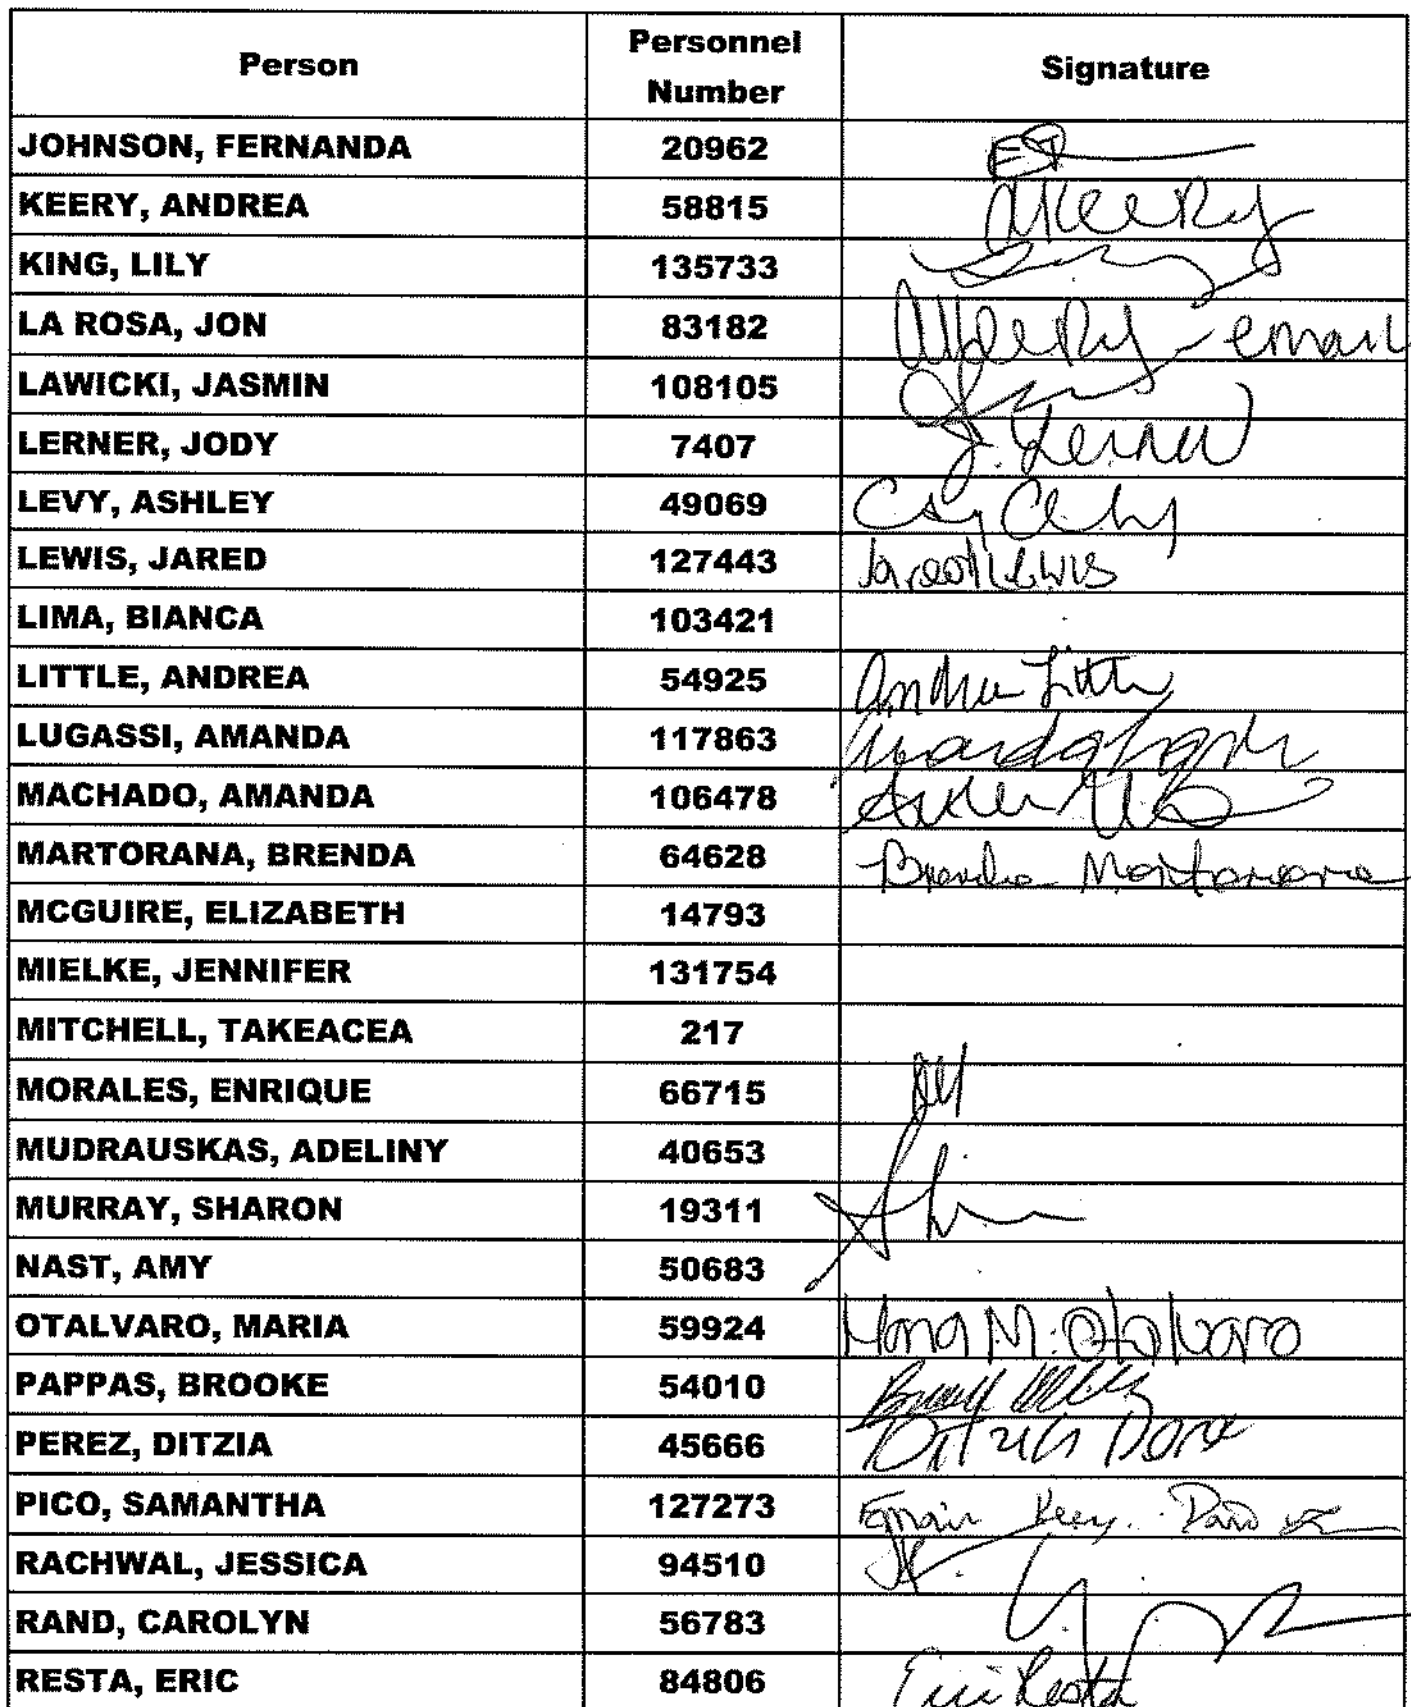 Person Personnel Number Signature
JOHNSON, FERNANDA 20962 FJ
KEERY, ANDREA 58815 AKeery
KING, LILY 135733
LA ROSA, JON 83182 AKeery - email
LAWICKI, JASMIN 108105
LERNER, JODY 7407 J. Lerner
LEVY, ASHLEY 49069
LEWIS, JARED 127443 Jared Lewis
LIMA, BIANCA 103421
LITTLE, ANDREA 54925 Andrea Little
LUGASSI, AMANDA 117863
MACHADO, AMANDA 106478
MARTORANA, BRENDA 64628 Brenda Martorana
MCGUIRE, ELIZABETH 14793
MIELKE, JENNIFER 131754
MITCHELL, TAKEACEA 217
MORALES, ENRIQUE 66715
MUDRAUSKAS, ADELINY 40653
MURRAY, SHARON 19311
NAST, AMY 50683
OTALVARO, MARIA 59924 Maria M. Otalvaro
PAPPAS, BROOKE 54010
PEREZ, DITZIA 45666 Ditzia
PICO, SAMANTHA 127273
RACHWAL, JESSICA 94510
RAND, CAROLYN 56783
RESTA, ERIC 84806 Eric Resta